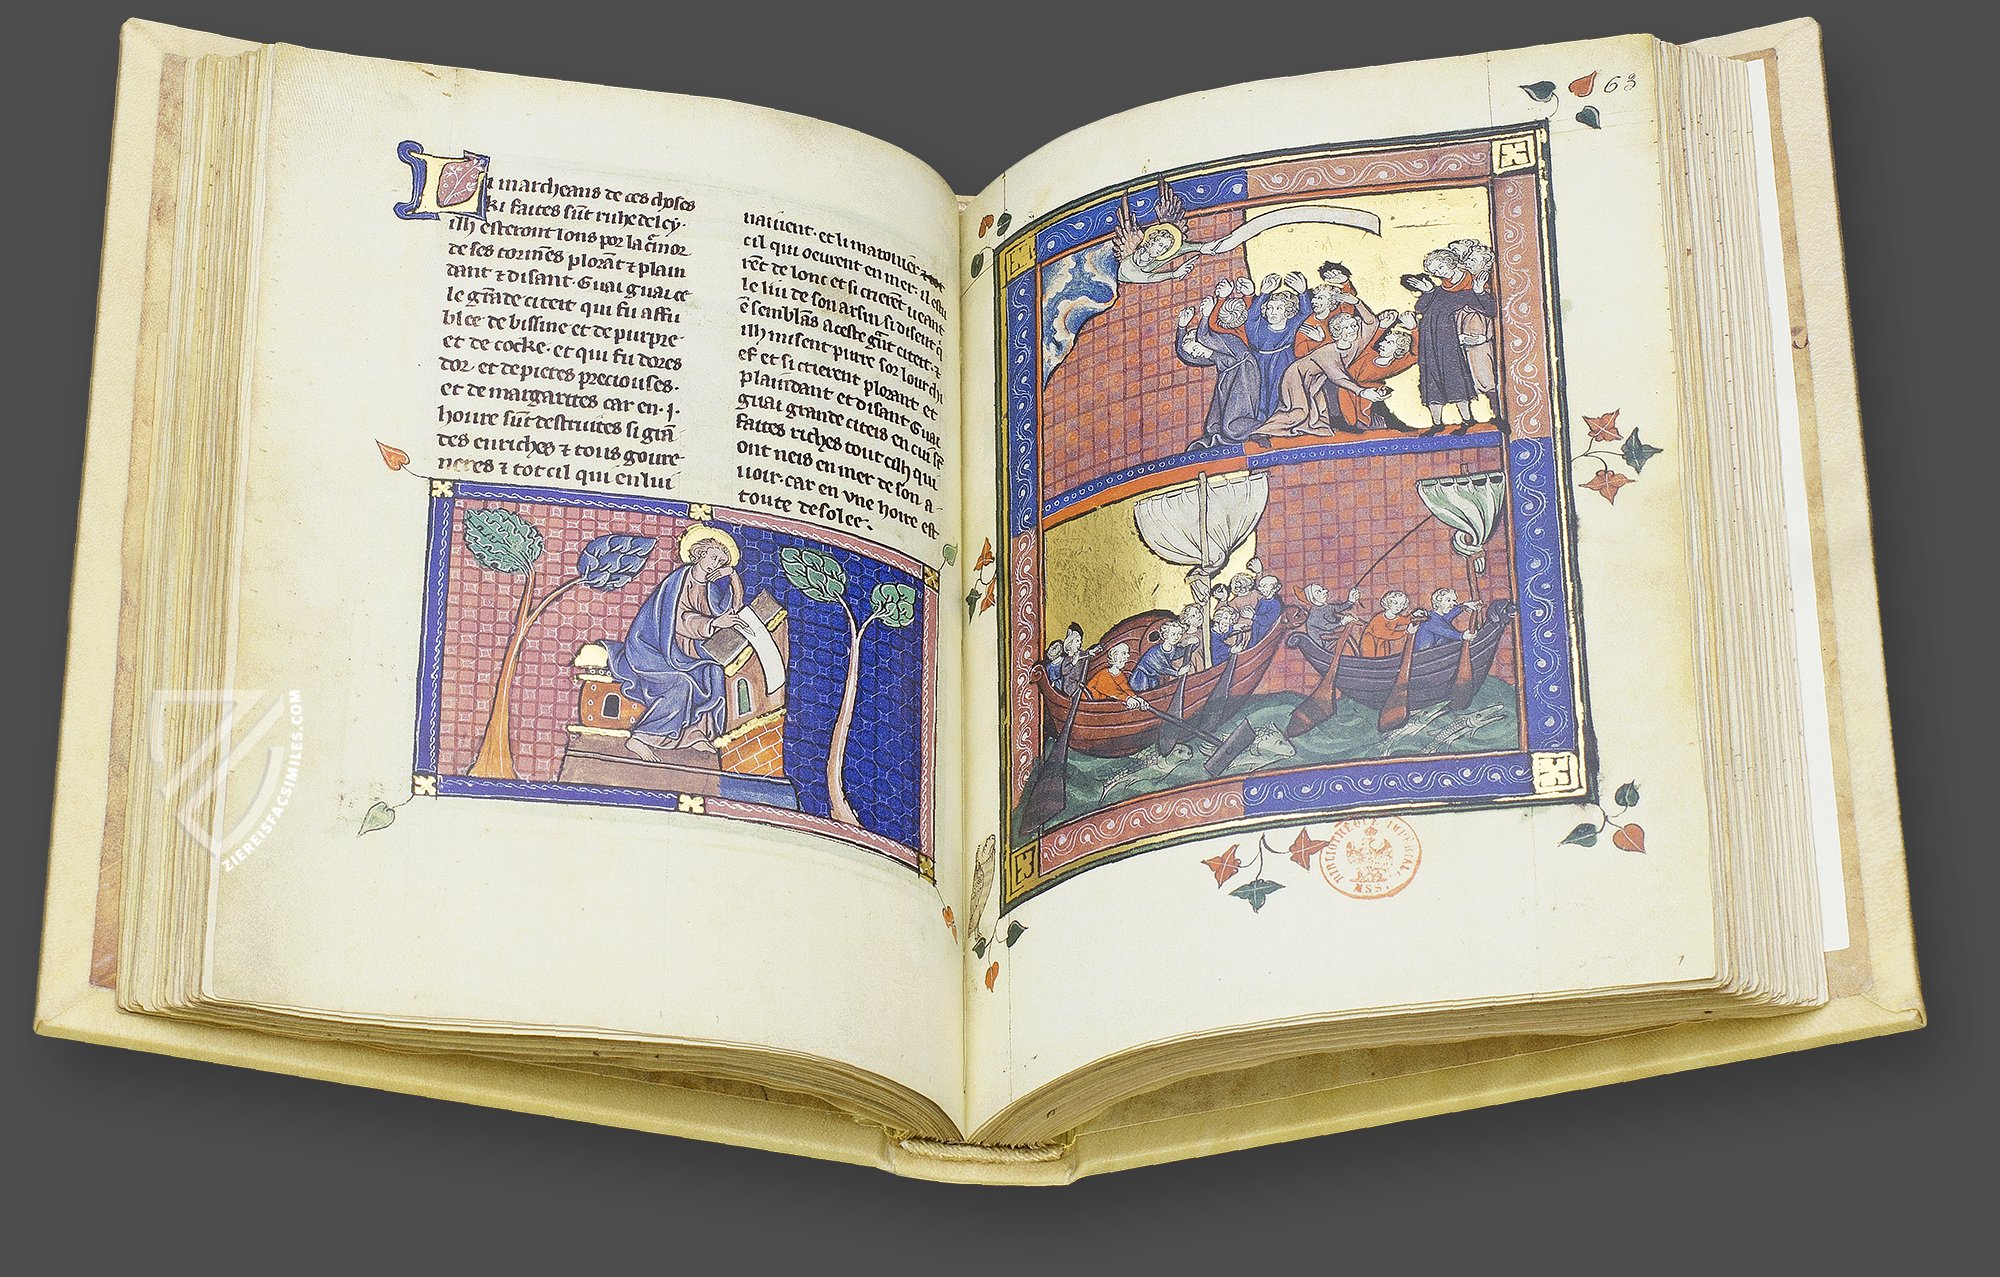 Li marcheans de ces choses
ki faites sūt riche de ley.
ilh esteront lons por la c̄mor
de ses tormēs plorāt ⁊ plain
dant ⁊ disant. Guai guai ce
le grāde citeit qui fu affu
blee de bissine et de purpre
et de cocke. et qui fu dores
dor. et de pieres preciouses.
et de margarites car en .j.
houre sūt destruites si grā
des enriches ⁊ tous gouue
neres ⁊ tot cil qui en lui
uauient. et li maronier
cil qui oeurent en mer. il estu
rēt de lonc et si crierēt ueant
le liu de son arsin. si disent q̄
ē semblās a ceste grāt citeit. ⁊
ilh misent purre sor lour chi
ef et si crierent plorant et
plaindant et disant Guai
guai grande citeis en cui sūt
faites riches tout cilh qui
ont neis en mer de son a-
uoir. car en vne hore est
toute desolee.
63
BIBLIOTHÈQUE IMPÉRIALE
MSS.
ZIEREISFACSIMILES.COM